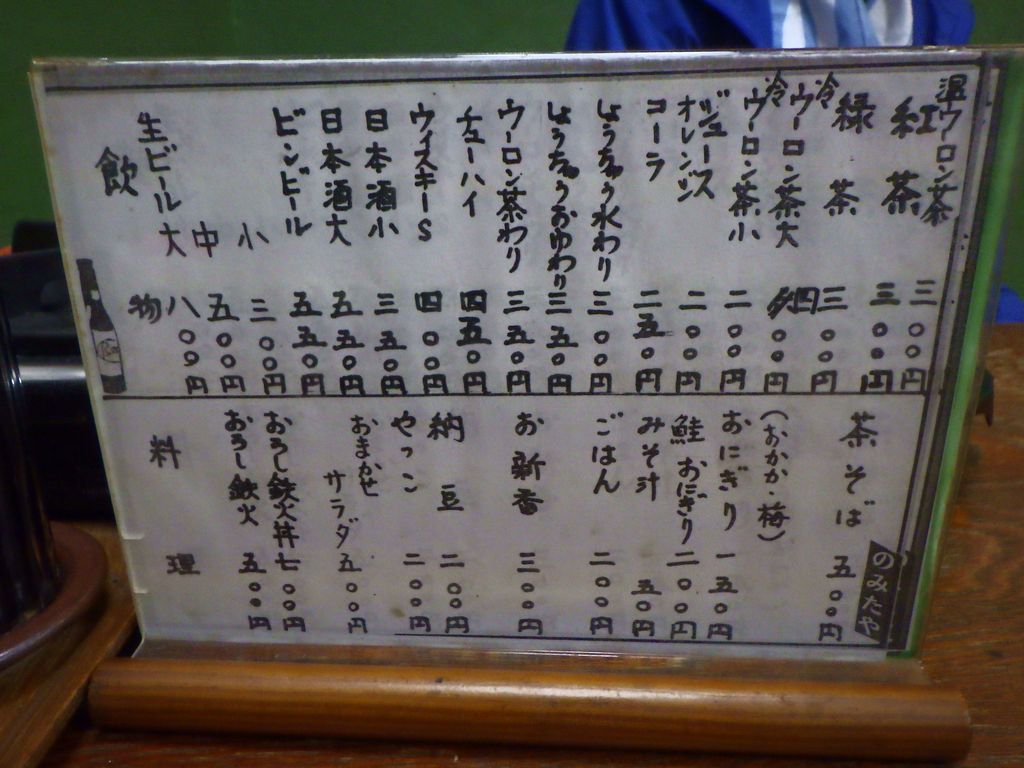 飲物
生ビール 大 八〇〇円
中 五〇〇円
小 三〇〇円
ビンビール 五五〇円
日本酒大 五五〇円
日本酒小 三五〇円
ウィスキーS 四〇〇円
チューハイ 四五〇円
ウーロン茶わり 三五〇円
しょうちゅうおゆわり 三五〇円
しょうちゅう水わり 三〇〇円
コーラ 二五〇円
オレンジ
ジュース 二〇〇円
冷ウーロン茶小 二〇〇円
冷ウーロン茶大 四〇〇円
緑茶 三〇〇円
紅茶 三〇〇円
温ウーロン茶 三〇〇円
料理
おろし鉄火 五〇〇円
おろし鉄火丼 七〇〇円
おまかせ
サラダ 五〇〇円
やっこ 二〇〇円
納豆 二〇〇円
お新香 三〇〇円
ごはん 二〇〇円
みそ汁 五〇円
鮭おにぎり 二〇〇円
おにぎり 一五〇円
(おかか・梅)
茶そば 五〇〇円
のみたや